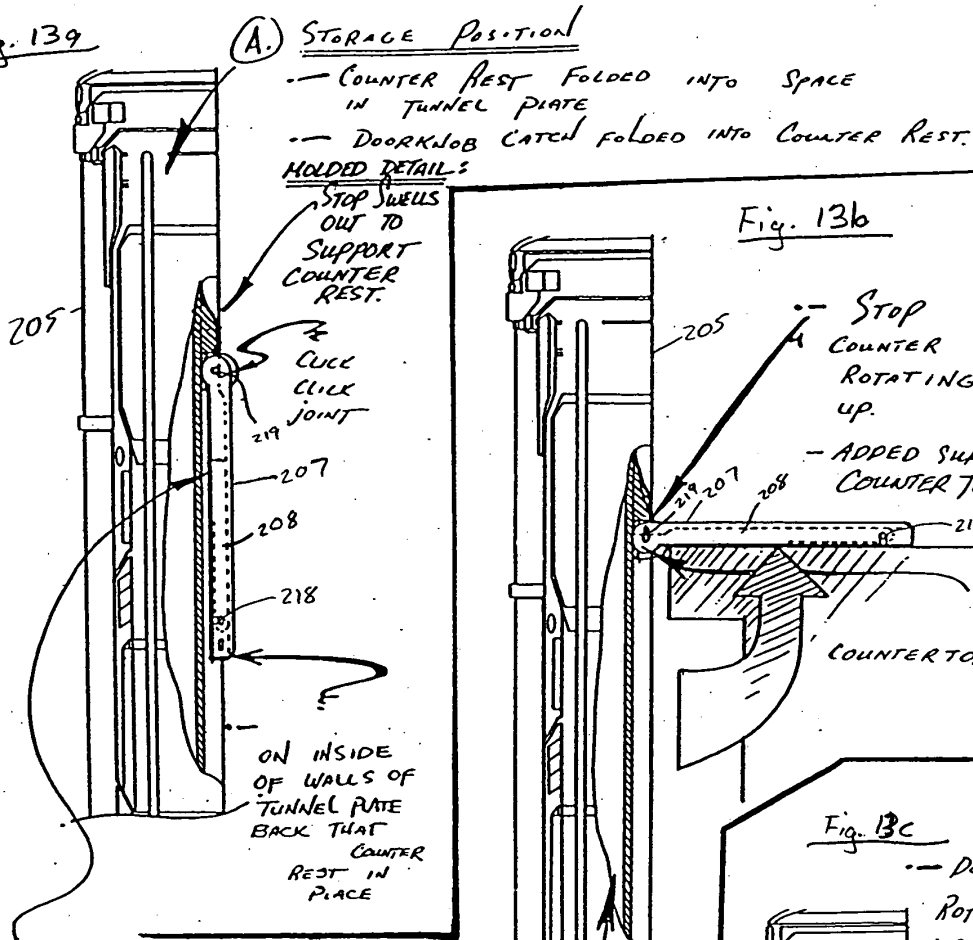 g. 13a
A. STORAGE POSITION
·— COUNTER REST FOLDED INTO SPACE
IN TUNNEL PLATE
·— DOORKNOB CATCH FOLDED INTO COUNTER REST.
MOLDED DETAIL:
STOP SWELLS
OUT TO
SUPPORT
COUNTER
REST.
CLICK
CLICK
JOINT
205
219
207
208
218
ON INSIDE
OF WALLS OF
TUNNEL PLATE
BACK THAT
COUNTER
REST IN
PLACE
Fig. 13b
205
·— STOP
COUNTER
ROTATING
UP.
- ADDED
COUNTER
219
207
208
21
COUNTERTO
Fig. 13c
ROT